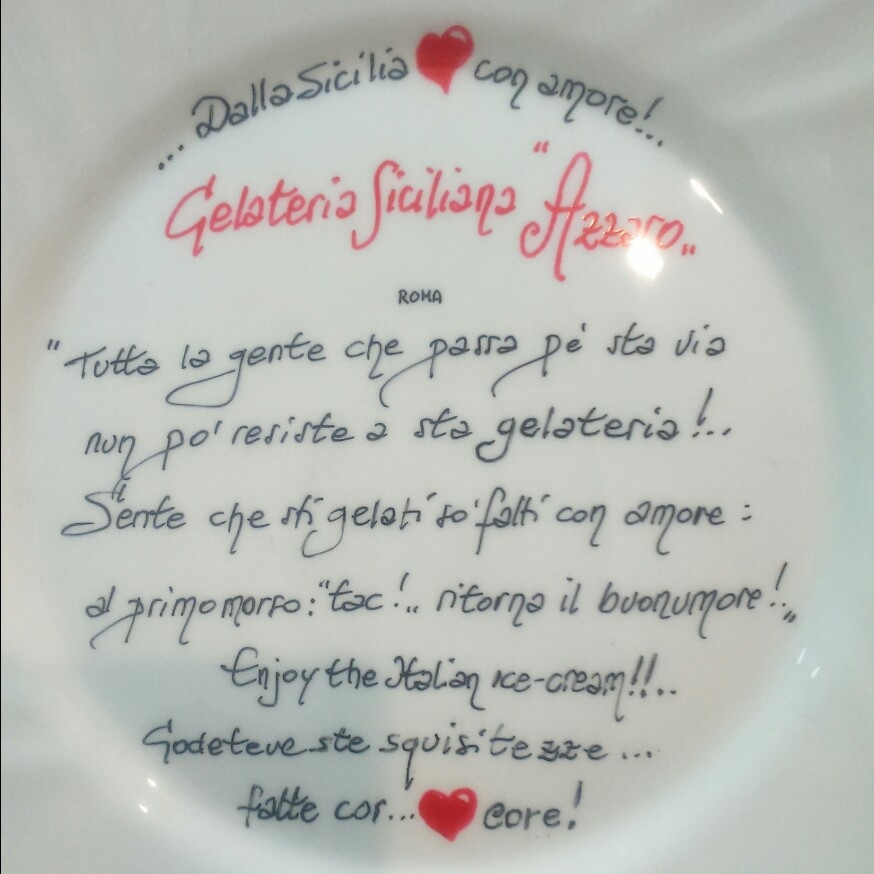 ... Dalla Sicilia ❤ con amore!..
Gelateria Siciliana "Azzaro„
ROMA
"Tutta la gente che passa pe' sta via
nun po' resiste a sta gelateria!..
Sente che sti gelati so' fatti con amore:
al primo morso: "tac!„ ritorna il buonumore!.„
Enjoy the Italian ice-cream!!..
Godeteve ste squisitezze...
fatte cor...❤ core!